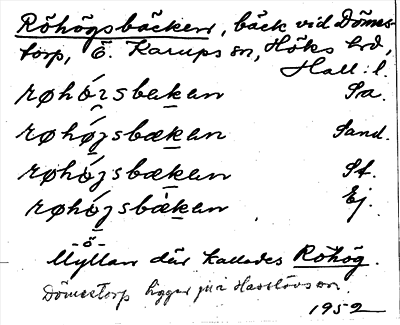 Röhögsbäcken, bäck vid Dömes-
torp, Ö. Karups sn, Höks hd,
Hall. l.
røhóɪsbakan Sa.
røhǿʒsbækan Sand.
røhǿʒsbækan St.
røhǿʒsbækan Ej.
-ö-
Myllan där kallades Röhög.
Dömestorp ligger ju i Hasslövs sn.
1952